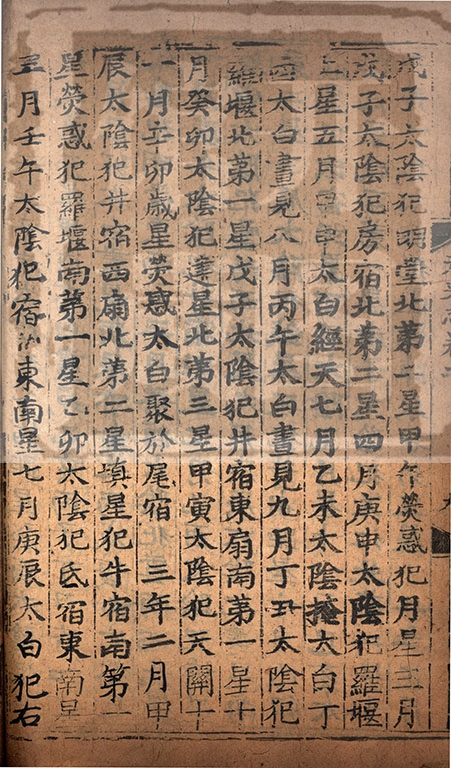 戊子太陰犯明堂北第二星甲午熒惑犯月星三月
戊子太陰犯房宿北第二星四月庚申太陰犯羅堰
上星五月甲申太白經天七月乙未太陰掩太白丁
酉太白晝見八月丙午太白晝見九月丁丑太陰犯
羅堰北第一星戊子太陰犯井宿東扇南第一星十
月癸卯太陰犯建星北第三星甲寅太陰犯天關十
一月辛卯歲星熒惑太白聚於尾宿三年二月甲
辰太陰犯井宿西扇北第二星塡星犯牛宿南第一
星熒惑犯羅堰南第一星乙卯太陰犯氐宿東南星
五月壬午太陰犯宿東南星七月庚辰太白犯右